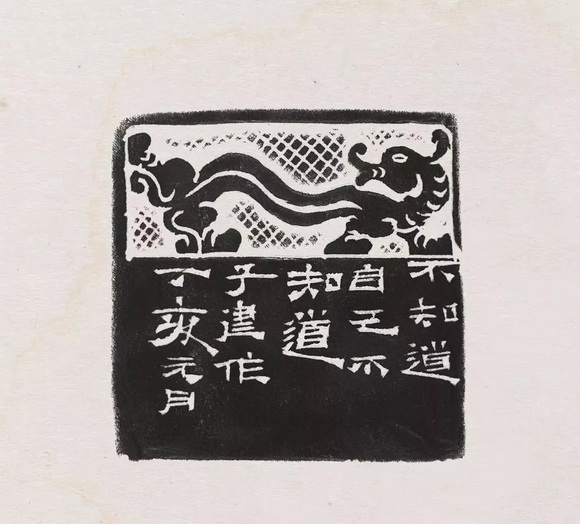 不知道
自己不
知道
子建作
丁亥元月